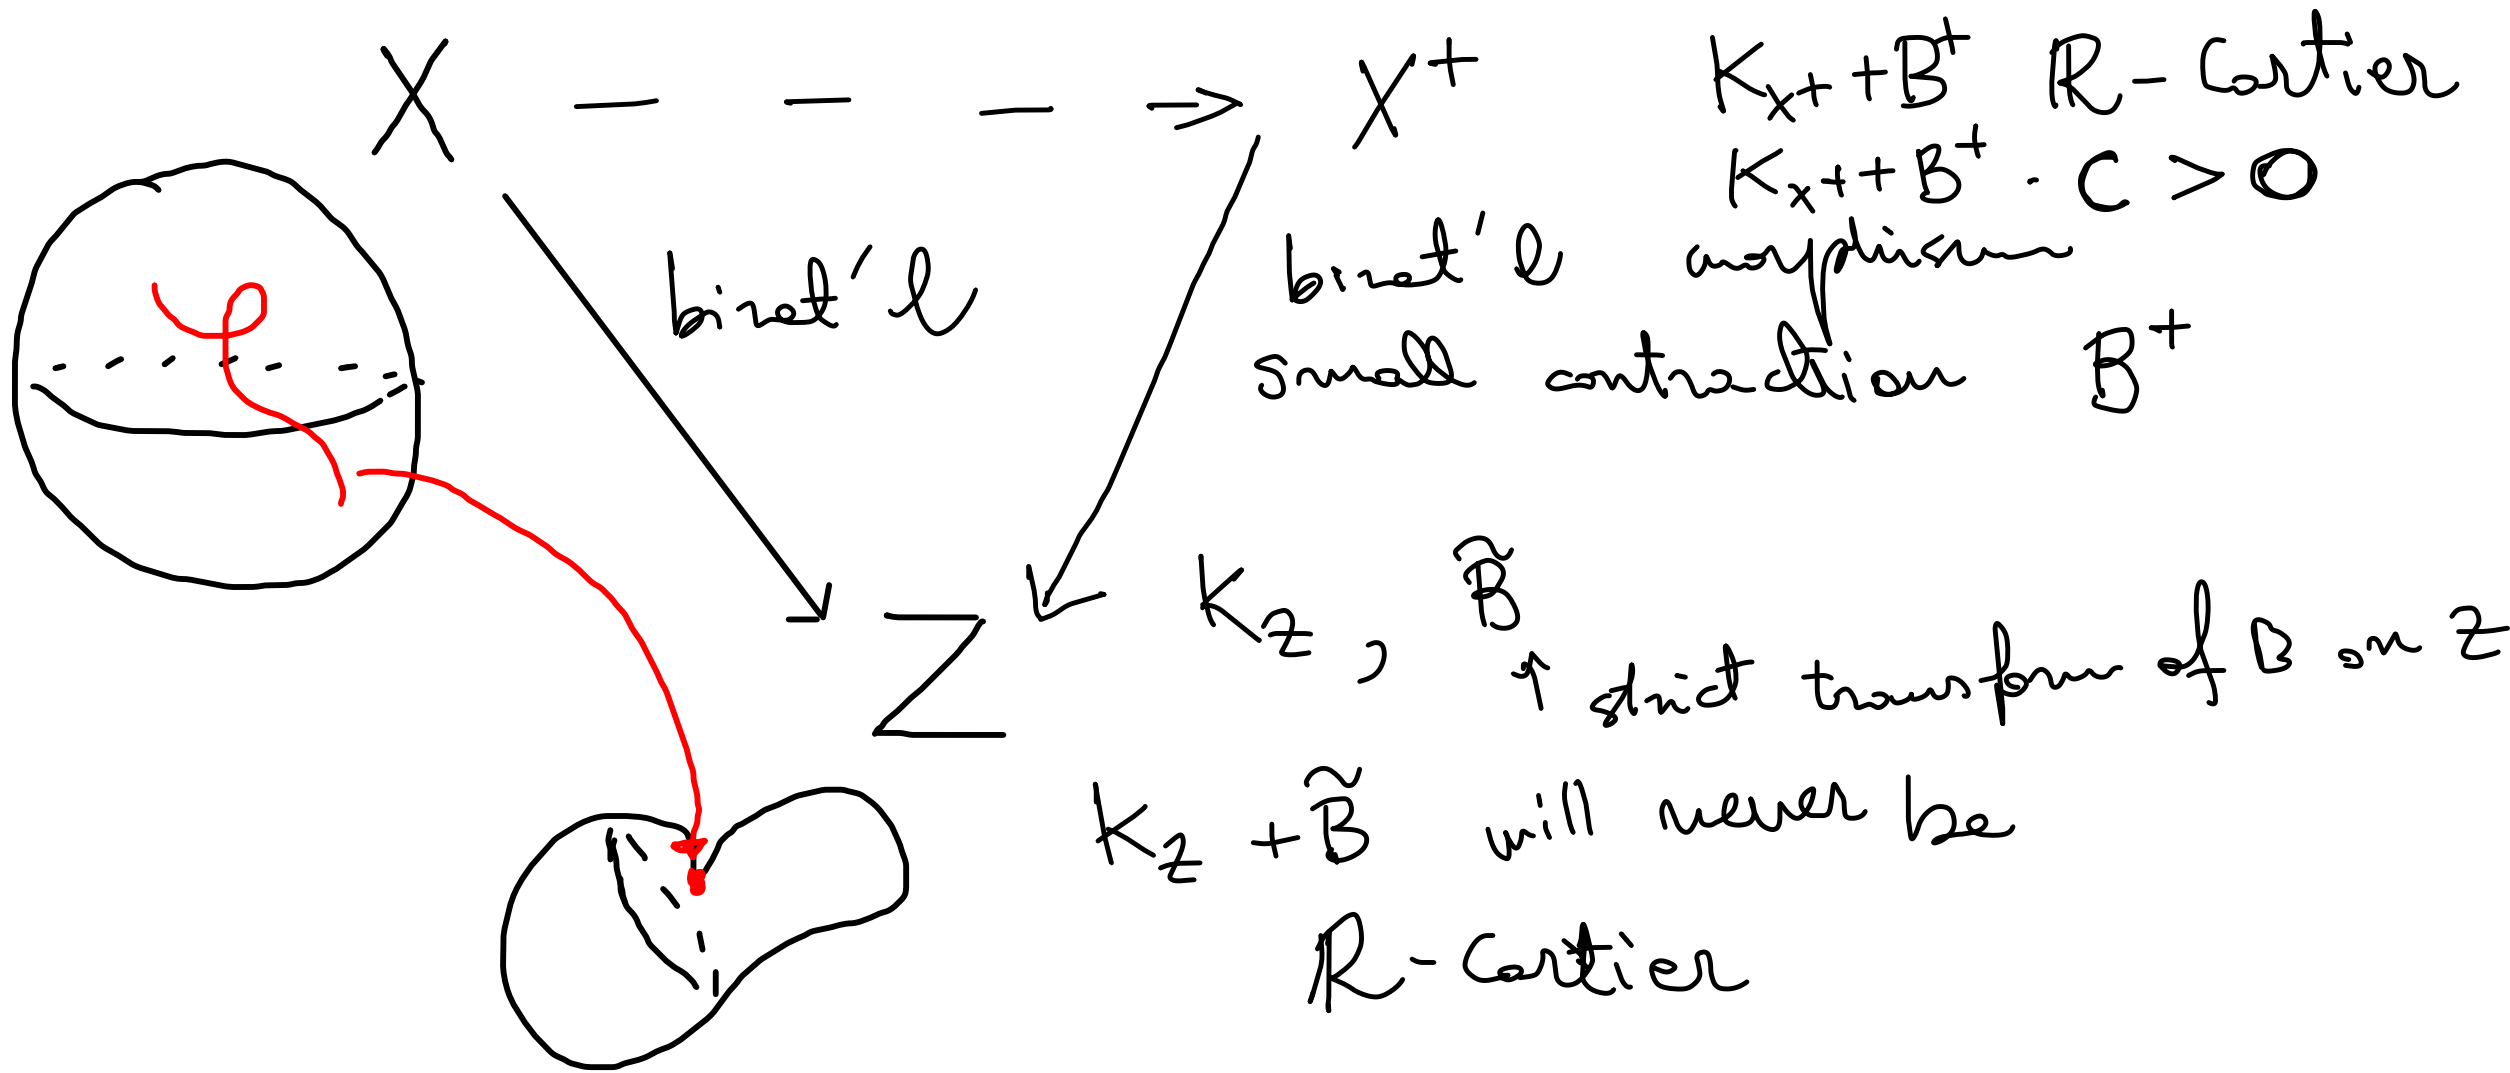 X ⇢ X⁺
K_{X⁺} + B⁺ R-Cartier
K_{X⁺} + B⁺ · C > 0
birat'l
birat'l
small contraction B⁺
Z K_Z , B̃
↑ strict transform of B on Z
K_Z + B̃ will never be
R-Cartier